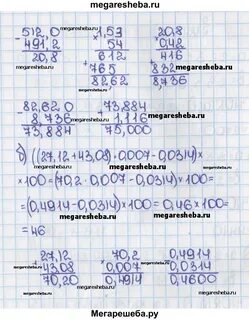 megaresheba.ru megaresheba.ru
512,0 1,53 20,8
- 491,2 × 54 × 0,42
20,8 612 416
+ 765 + 832
82,62 8,736
82,620 73,884
- 8,736 +
73,884 75,000
б) ((27,12 + 43,08) · 0,007 - 0,0314) ×
× 100 = (70,2 · 0,007 - 0,0314) × 100 =
= (0,4914 - 0,0314) × 100 = 0,46 × 100 =
= 46
+ 27,12 × 70,2 - 0,4914
43,08 0,007 0,0314
70,20 0,4914 0,4600
Мегарешеба.ру